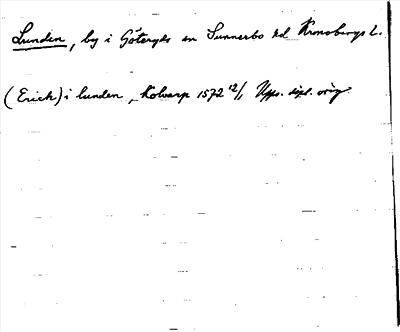 Lunden, by i Göteryds sn Sunnerbo hd Kronobergs L.
(Erick) i lunden, Kolvarp 1572 12/1 Upps. dipl. orig.